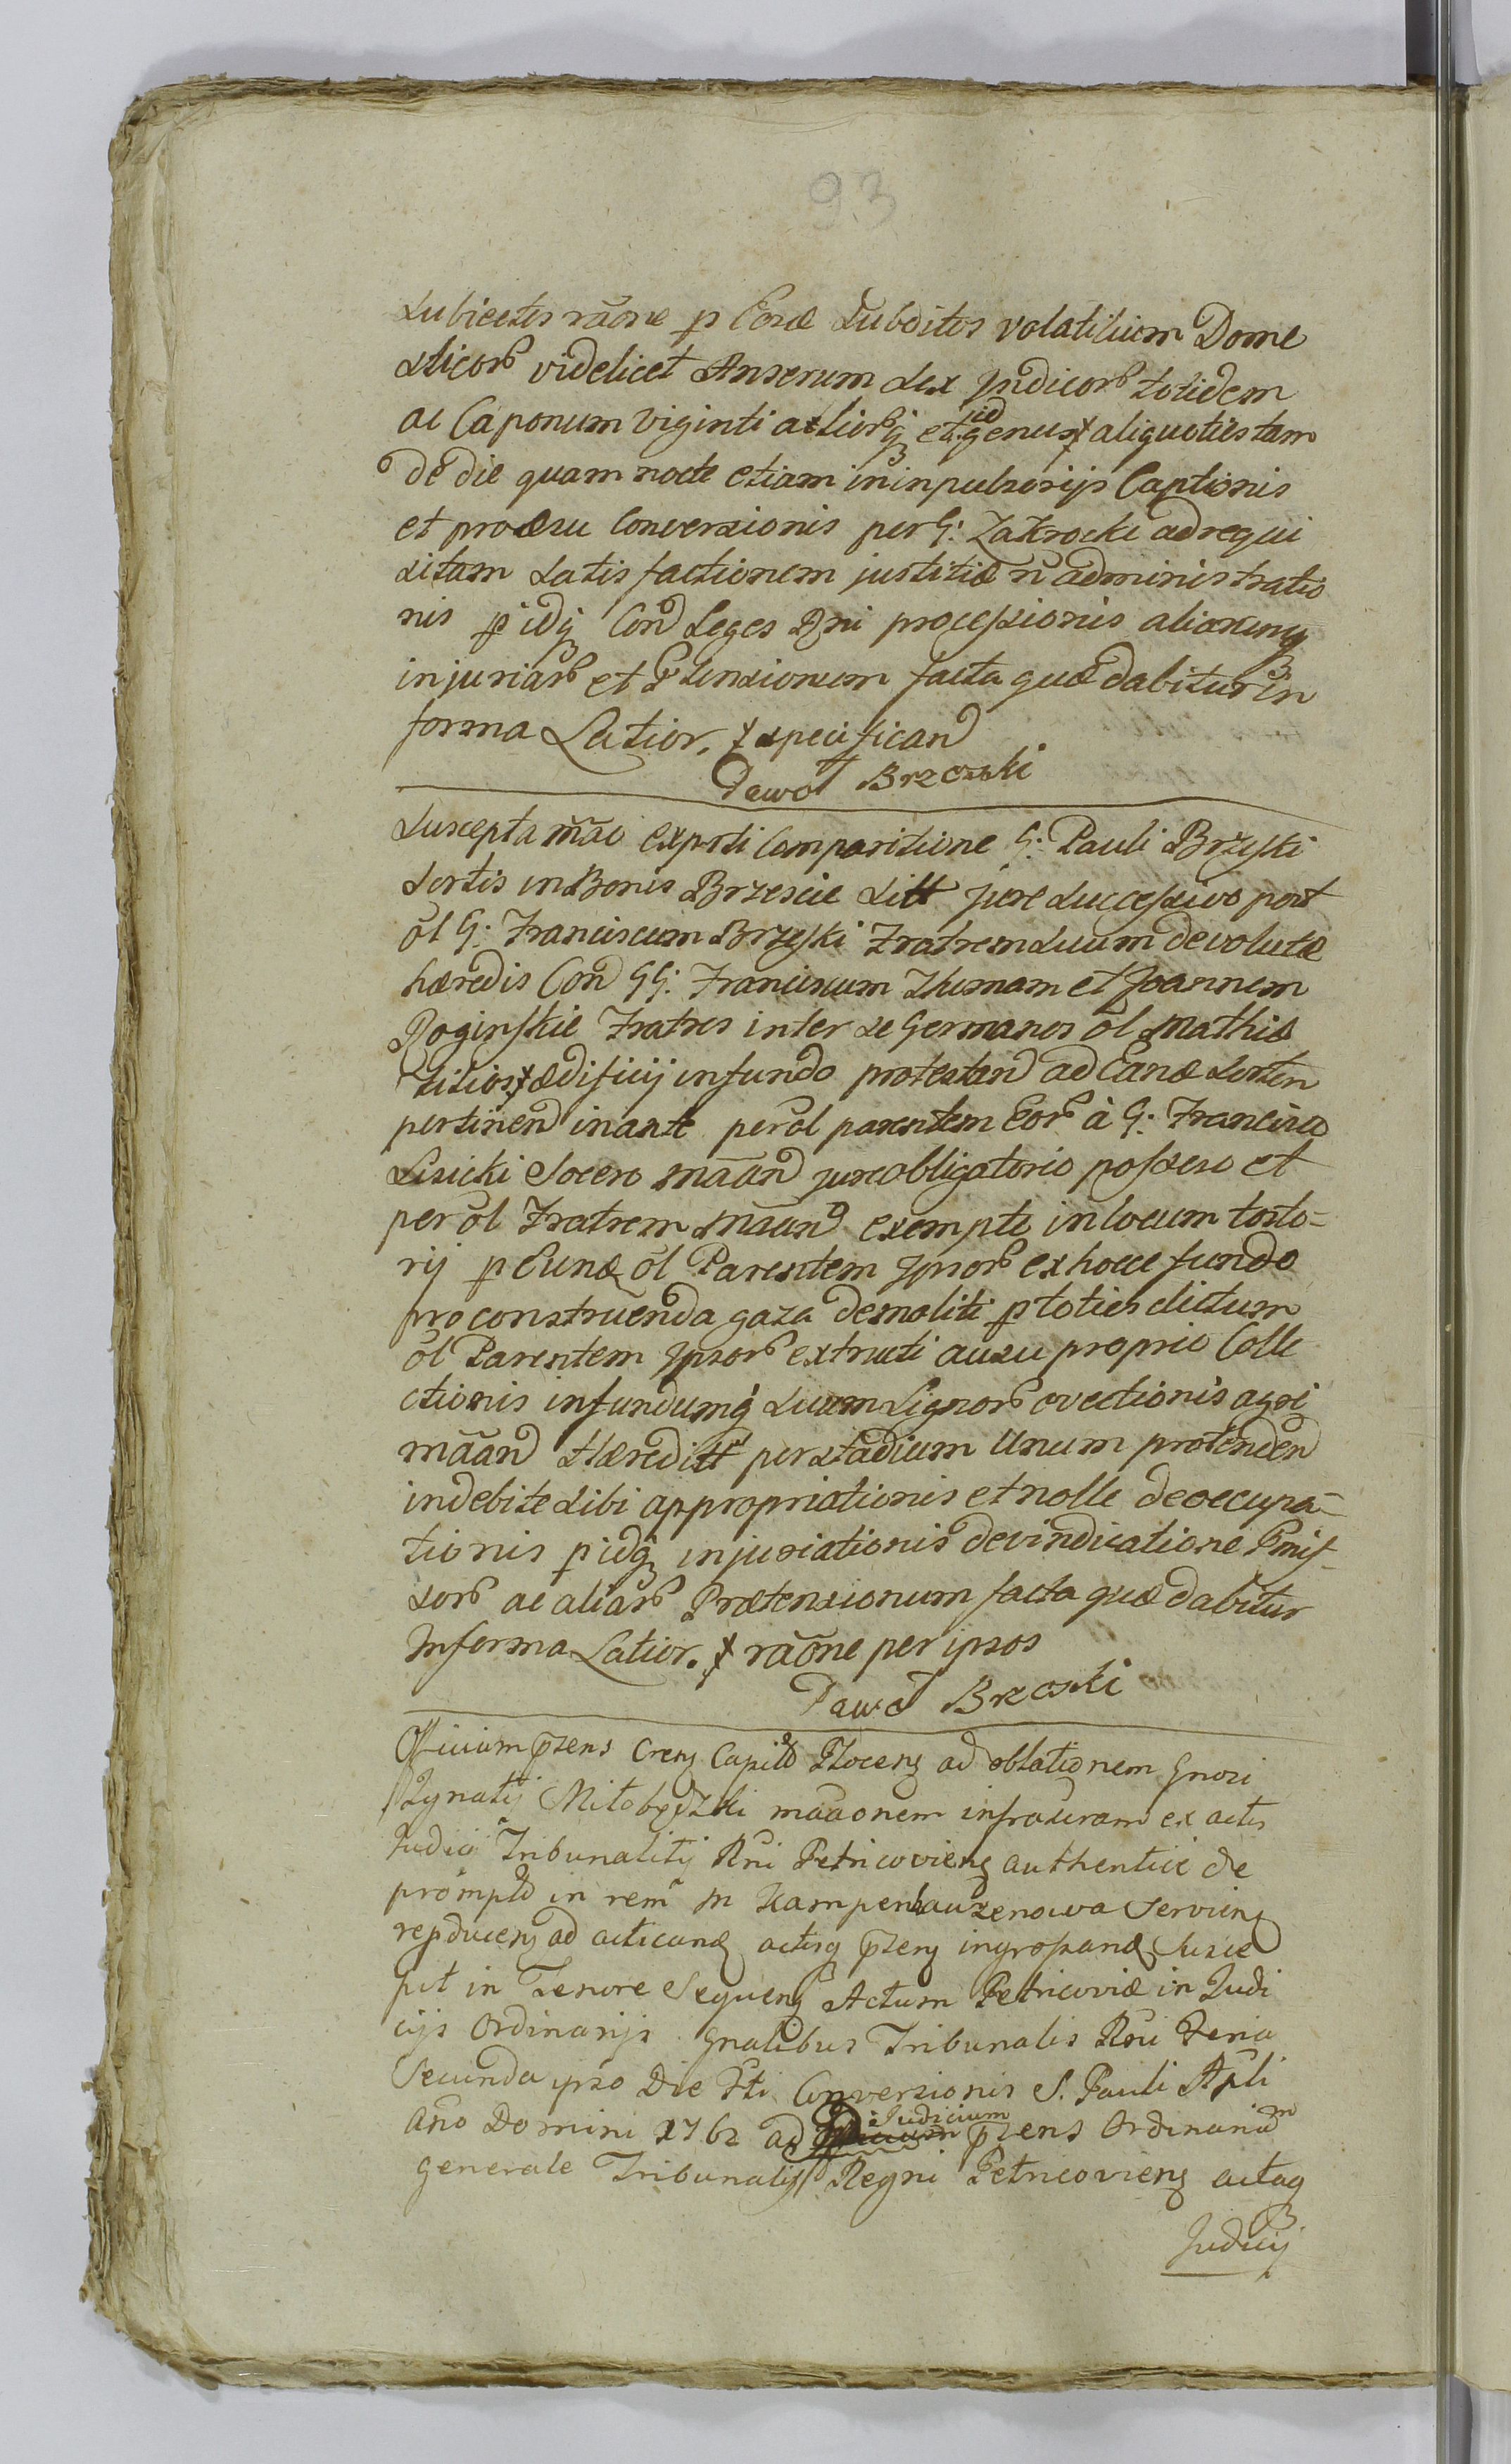 93
Subiectis rãone p Eosd Subditos volatilium Dome
sticor videlicet Anserum sex Indicor totidem
ac Caponum Viginti aliorq et id genus ≠ aliquoties tam
de die quam nocte etiam in inpulsorijs Captionis
et pro esu Conversionis per G: Zakrocki ad requi
sitam Satisfactionem justitiæ ñ administratio
nis p idq Con Leges Rni processionis aliarumq
injuriar et Ptensionum facta quæ dabitur in
forma Latior, ≠ specificand
Paweł Brzeski
Suscepta mãõ ex parti Comparitione G: Pauli Brzeski
Sortis in Bonis Brzescie Sitt jure Successivo post
ol G: Franciscum Brzeski Fratrem Suum devolutæ
hæredis Con GG: Franciscum Thomam et Joannem
Roginskie Fratres inter se Germanos ol Mathiæ
Filios ≠ ædificij in fundo protestand ad Eand Sortem
pertinen in ante per ol parentem Eor à G: Francisco
Lisicki Socero mãan jure obligatorio possesso et
per ol Fratrem mãan exempte in locum torto=
rij p Eund ol Parentem Ipsor ex hocce fundo
pro construenda gaza demoliti p toties dictum
ol Parentem Ipsor extructi ausu proprio Colle
ctionis in fundumq Suum Lignor evectionis agri
mãan Hæreditt per stadium Unum protenden
indebite Sibi appropriationis et nolle deoccupa=
tionis p idq injuriationis de vindicatione Pmis
sor ac aliar Prætensionum facta quæ dabitur
In forma Latior. ≠ rãone per ipsos
Paweł Brzeski
Officium pzens Crens Capitd Plocens ad oblationem Gnosi
Ignatij Miłobędzki mãaonem infrascram ex actis
Judicij Tribunalitij Rni Petricoviens authentice de
promptd in rem M Kampenhauzenowa Serviens
repducens ad acticand actisq pzens ingrossand Susce
pit in Tenore Sequens Actum Petricoviæ in Judi
cijs Ordinarijs Gnalibus Tribunalis Rni Feria
Secunda ipso Die Fti Conversionis S. Pauli Apli
Año Domini 1762 ad Judicium pzens Ordinariũm
Generale Tribunalis Regni Petricoviens actaq
Judicij